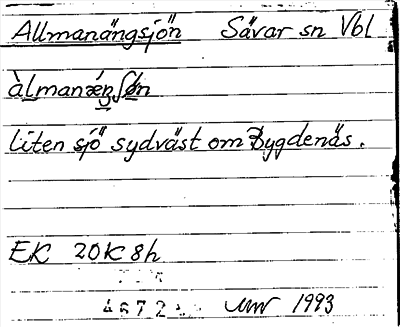 Allmanängsjön Sävar sn Vbl
àlmanǽŋʃø̀n
liten sjö sydväst om Bygdenäs.
EK 20K 8h
4672 1993